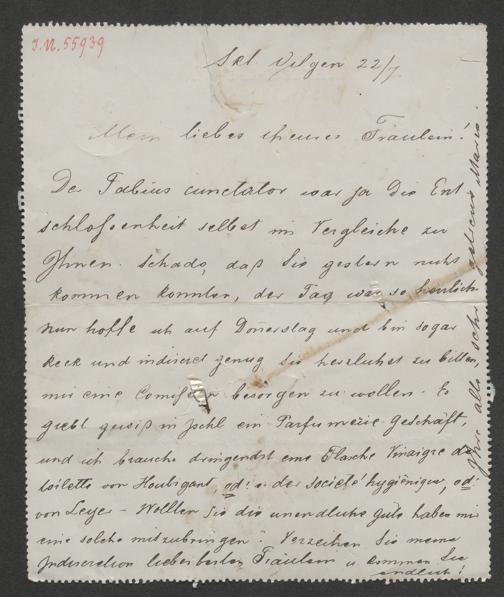 I.N. 55939
Skt Gilgen 22/7
Mein liebes theures Fräulein!
Der Fabius cunctator war ja die Ent
schlossenheit selbst im Vergleiche zu
Ihnen. Schade, daß Sie gestern nicht
kommen konnten, der Tag war so herrlich
nun hoffe ich auf Donnerstag und bin sogar
keck und indiscret genug Sie herzlichst zu bitten,
mir eine besorgen zu wollen. Es
giebt gewiß in Ischl ein Parfumerie-Geschäft,
und ich brauche dringendst eine Flasche Vinaigre de
toilette von Houbigant, od: v. der société hygiénique, od:
von – Wollten Sie die unendliche Güte haben mir
eine solche mitzubringen? Verzeihen Sie meine
Indiscretion liebes bestes Fräulein u. kommen Sie
endlich!
Ihre alte, sehr